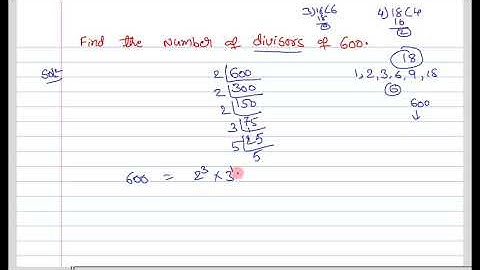 3)18(6
18
0
4)18(4
16
2
Find the number of divisors of 600.
18
1, 2, 3, 6, 9, 18
6
600
↓
Solⁿ
2 | 600
2 | 300
2 | 150
3 | 75
5 | 25
5
600 = 2³ × 3¹